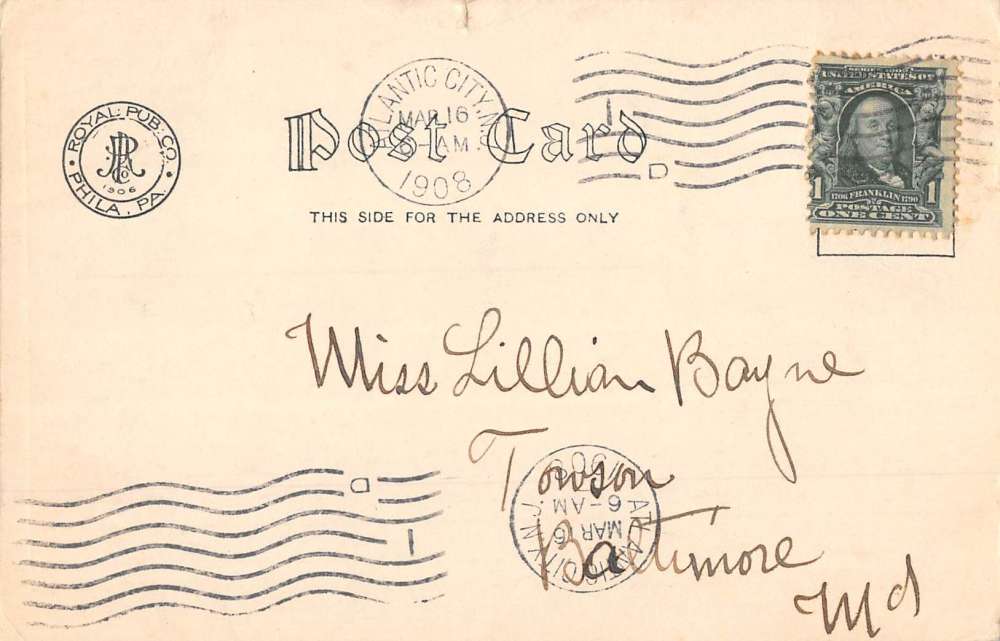 ROYAL PUB. CO.
PRCo
1906
PHILA. PA.
ATLANTIC CITY, N.J.
MAR 16
AM
1908
Post Card
THIS SIDE FOR THE ADDRESS ONLY
1
D
SERIES 1902
UNITED STATES OF
AMERICA
1 1
1706 FRANKLIN 1790
POSTAGE
ONE CENT
Miss Lillian Bayne
Towson
Baltimore
Md
D
1
ATLANTIC CITY, N.J.
MAR 16
6-AM
1908